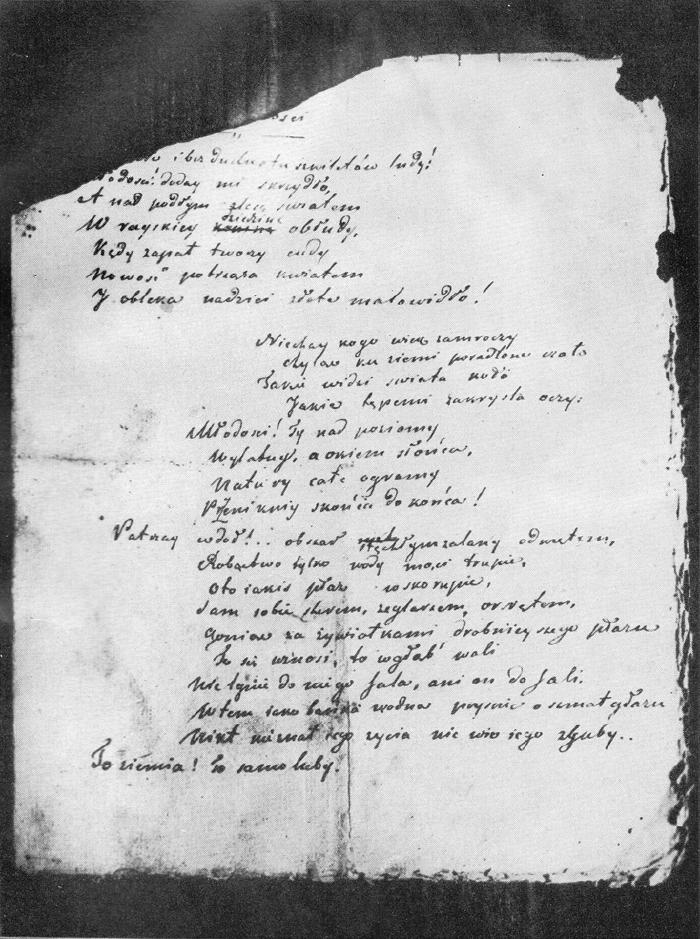 ości
i bez ducha to szkieletów ludy!
łodość! doday mi skrzydło,
A nad podłym zlecę światem
W rayskiey dziedzinę obłudy,
Kędy zapał tworzy cudy
Nowość potrząsa kwiatem
I obleka nadziei złote malowidło!
Niechay kogo wiek zamroczy
chyląc ku ziemi poradlone czoło
Takie widzi świata koło
Jakie tępemi zakryśla oczy;
Młodości! Ty nad poziomy
Wylatuy, a okiem słońca,
Natury całe ogromy
Przenikniy z końca do końca!
Patrzay w dół!.. obszar stęchłym zalany odmętem,
Robactwo tylko wody mąci trupie,
Oto iakiś płaz w skorupie,
Sam sobie sterem, żeglarzem, okrętem,
Goniąc za żywiołkami drobnieyszego płazu
To się wznosi, to w głąb' wali
Nie lgnie do niego fala, ani on do fali.
Wtem iako bańka wodna pryśnie o szmat głazu
Nikt nieznał iego życia nie wie iego zguby..
To ziemia! to samoluby.